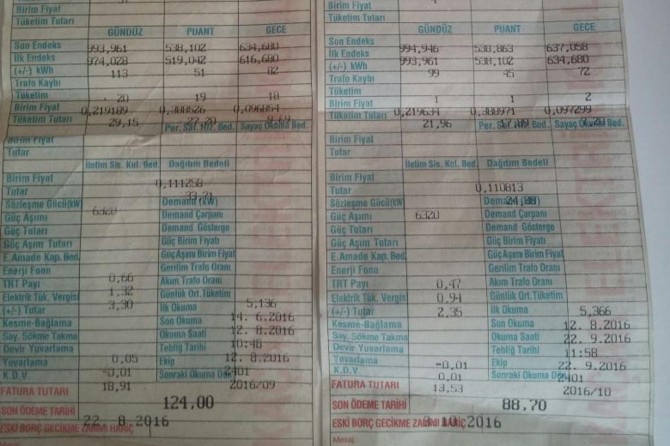 Birim Fiyat
Tüketim Tutarı
GÜNDÜZ PUANT GECE
Son Endeks 993,961 538,102 634,680
İlk Endeks 974,028 519,042 616,680
(+/-) kWh 113 51 82
Trafo Kaybı
Tüketim 20 19 18
Birim Fiyat 0,219189 0,388526 0,096854
Tüketim Tutarı 29,15 27,20 9,69
Per. Sat. Hiz. Bed. Sayaç Okuma Bed.
Birim Fiyat
Tutar
İletim Sis. Kul. Bed. Dağıtım Bedeli
Birim Fiyat 0,111258
Tutar 33,21
Sözleşme Gücü(kW) 6320 Demand (kW)
Güç Aşımı Demand Çarpanı
Güç Tutarı Demand Gösterge
Güç Aşım Tutarı Güç Birim Fiyatı
E.Amade Kap. Bed. Güç Aşımı Birim Fiyat
Enerji Fonu 0,66 Gerilim Trafo Oranı
TRT Payı 1,32 Akım Trafo Oranı
Elektrik Tük. Vergisi 3,30 Günlük Ort.Tüketim 5,136
(+/-) Tutar İlk Okuma 14. 6.2016
Kesme-Bağlama Son Okuma 12. 8.2016
Say. Sökme Takma Okuma Saati 10:48
Devir Yuvarlama 0,05 Tebliğ Tarihi 12. 8.2016
Yuvarlama -0,01 Ekip 2401
K.D.V. 18,91 Sonraki Okuma Dön. 2016/09
FATURA TUTARI 124,00
SON ÖDEME TARİHİ 22. 8.2016
ESKİ BORÇ GECİKME ZAMMI HARİÇ
Birim Fiyat
Tüketim Tutarı
GÜNDÜZ PUANT GECE
Son Endeks 994,946 538,863 637,058
İlk Endeks 993,961 538,102 634,680
(+/-) kWh 99 45 72
Trafo Kaybı
Tüketim 1 1 2
Birim Fiyat 0,219634 0,388971 0,097299
Tüketim Tutarı 21,96 17,89 7,20
Per. Sat. Hiz. Bed. Sayaç Okuma Bed.
Birim Fiyat
Tutar
İletim Sis. Kul. Bed. Dağıtım Bedeli
Birim Fiyat 0,110813
Tutar
Sözleşme Gücü(kW) 6320 Demand (kW)
Güç Aşımı Demand Çarpanı
Güç Tutarı Demand Gösterge
Güç Aşım Tutarı Güç Birim Fiyatı
E.Amade Kap. Bed. Güç Aşımı Birim Fiyat
Enerji Fonu 0,47 Gerilim Trafo Oranı
TRT Payı 0,94 Akım Trafo Oranı
Elektrik Tük. Vergisi 2,35 Günlük Ort.Tüketim 5,366
(+/-) Tutar İlk Okuma 12. 8.2016
Kesme-Bağlama Son Okuma 22. 9.2016
Say. Sökme Takma Okuma Saati 11:58
Devir Yuvarlama -0,01 Tebliğ Tarihi 22. 9.2016
Yuvarlama 0,01 Ekip 2401
K.D.V. 13,53 Sonraki Okuma Dön. 2016/10
FATURA TUTARI 88,70
SON ÖDEME TARİHİ 10 2016
ESKİ BORÇ GECİKME ZAMMI HARİÇ
Mesaj